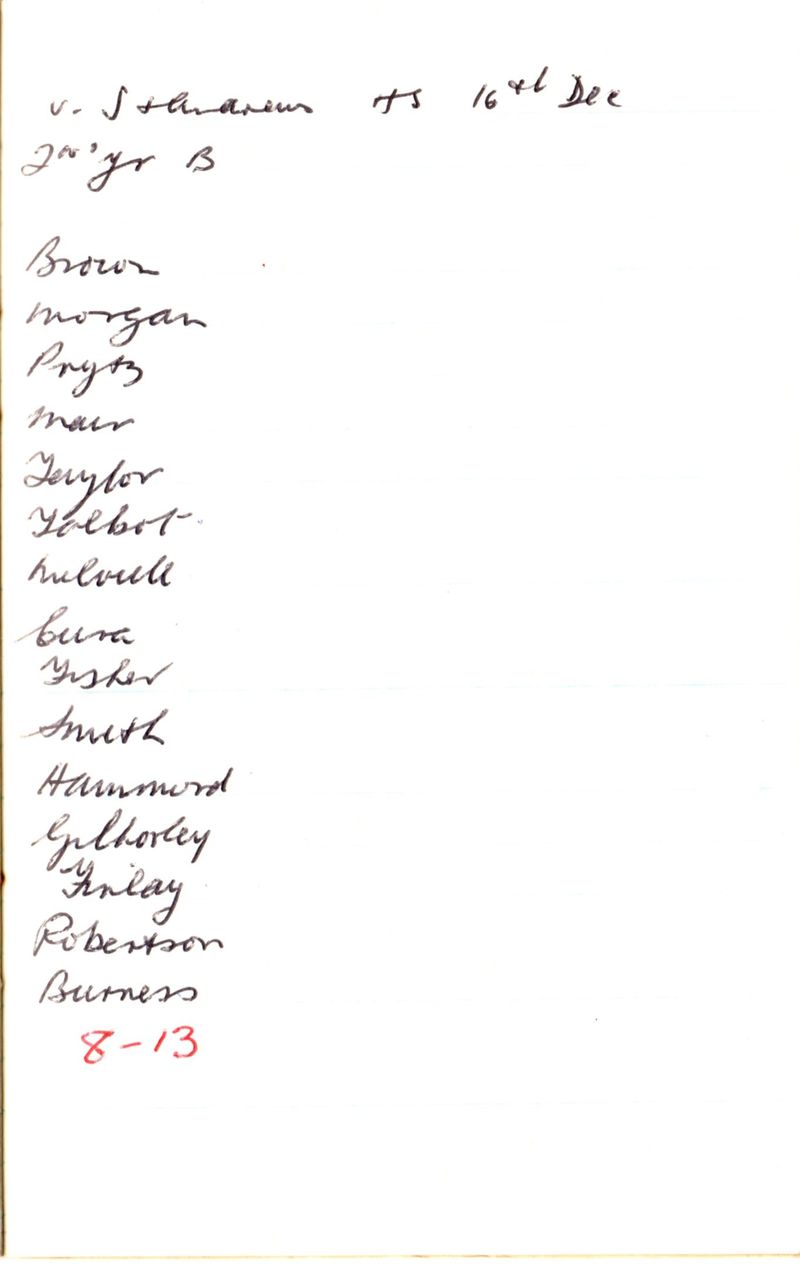 v. St Andrews HS 16th Dec
2nd yr B
Brown
Morgan
Prytz
Mair
Taylor
Talbot
Melvill
Fisher
Smith
Hammond
Gilhorley
Finlay
Robertson
Burness
8-13